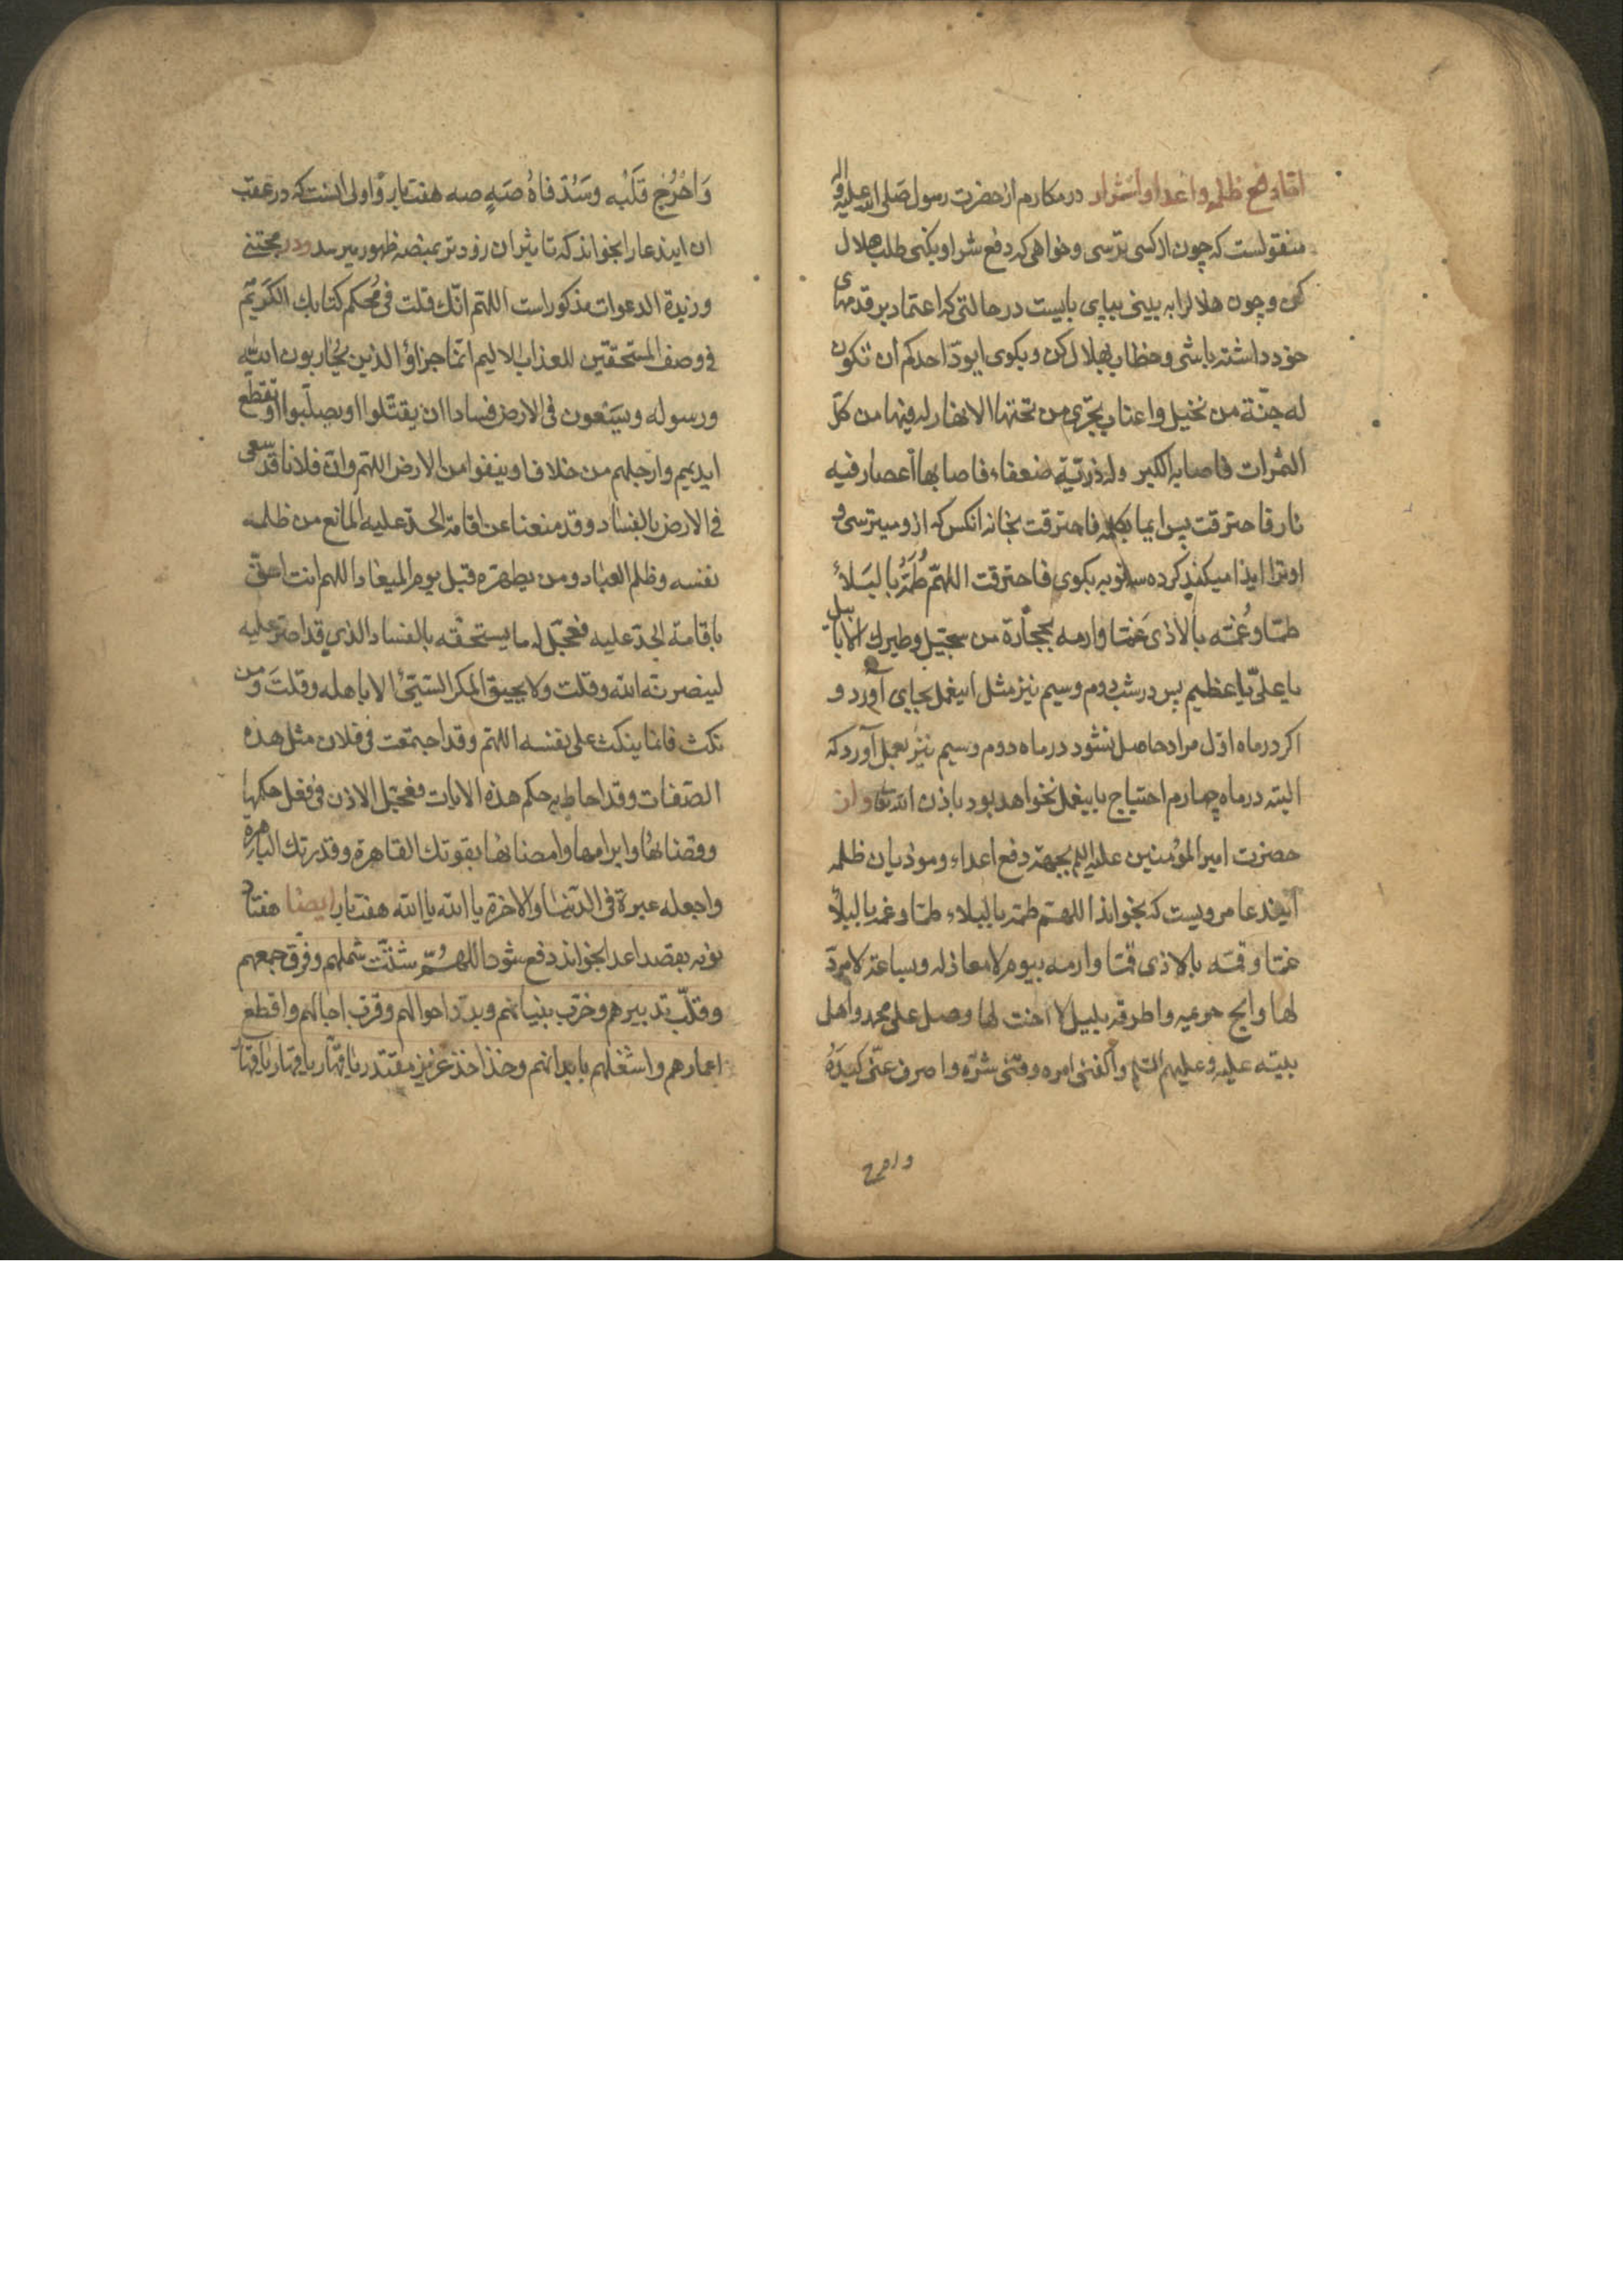 اما دفع ظلمه و اعدا و اشرار در مکارم از حضرت رسول صلی الله علیه و اله
منقولست که چون از کسی بترسی و خواهی که دفع شر او بکنی طلب هلال
کن و چون هلال را به بینی بپای بایست در حالتی که اعتماد بر قدمهای
خود داشته باشی و خطاب بهلال کن و بکوی ایود احدکم ان تکون
له جنة من نخیل و اعناب تجری من تحتها الانهار له فیها من کل
الثمرات فاصابه الکبر و له ذریة ضعفاء فاصابها اعصار فیه
نار فاحترقت پس ایما بکلمه فاحترقت بخانه انکس که ازو میترسی و
او ترا ایذا میکند کرده سه نوبه بکوی فاحترقت اللهم طمه بالبلاء
طما و غمه بالاذی غما و ارمه بحجارة من سجیل و طیرک الابابیل
یا علی یا عظیم پس در شب دوم و سیم نیز مثل اینعمل بجای آورد و
اکر در ماه اول مراد حاصل نشود در ماه دوم و سیم نیز بعمل آورد که
البته در ماه چهارم احتیاج باینعمل نخواهد بود باذن الله تعا و از
حضرت امیر المؤمنین علیه السلم بجهة دفع اعداء و موذیان ظلمه
ایندعا مرویست که بخواند اللهم طمه بالبلاء طما و غمه بالبلاء
غما و قمه بالاذی قما و ارمه بیوم لا معاذ له و بساعة لا مرد
لها و ابح حریمه و اطرقه بلیل لا اخت لها و صل علی محمد و اهل
بیته علیه و علیهم السلم و اکفنی امره و قنی شره و اصرف عنی کیده
و احرج
و احرج قلبه و سد فاه صه صه هفت بار و اولی انست که در عقب
ان ایندعا را بخواند که تا تاثیر ان زودتر بمنصه ظهور میرسد و در مجتنی
و زبدة الدعوات مذکور است اللهم انک قلت فی محکم کتابک الکریم
فی وصف المستحقین للعذاب الالیم انما جزاؤ الذین یحاربون الله
و رسوله و یسعون فی الارض فسادا ان یقتلوا او یصلبوا او تقطع
ایدیهم و ارجلهم من خلاف او ینفوا من الارض اللهم و ان فلانا قد سعی
فی الارض بالفساد و قد منعنا عن اقامة الحد علیه المانع من ظلمه
نفسه و ظلم العباد و من یطهره قبل یوم المیعاد اللهم انت احق
باقامة الحد علیه فعجل له ما یستحقه بالفساد الذی قد اصر علیه
لینصرنه الله و قلت و لا یحیق المکر السیئ الا باهله و قلت و من
نکث فانما ینکث علی نفسه اللهم و قد اجتمعت فی فلان مثل هذه
الصفات و قد احاط به حکم هذه الایات فعجل الاذن فی فعل حکمها
و قضائها و ابرامها و امضائها بقوتک القاهرة و قدرتک الباهره
و اجعله عبرة فی الدنیا و الاخرة یا الله یا الله هفت بار ایضا هفتاد
نوبه بقصد اعدا بخواند دفع شود اللهم شتت شملهم و فرق جمعهم
و قلب تدبیرهم و خرب بنیانهم و بدل احوالهم و قرب اجالهم و اقطع
اعمارهم و اشغلهم بابدانهم و خذ اخذ عزیز مقتدر یا قهار یا قهار یا قهار